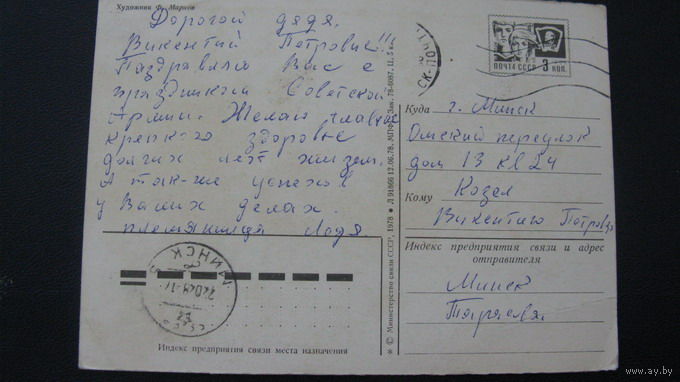 Художник
Дорогой дядя.
Викентий Петрович!!!
Поздравляю Вас с
праздником Советской
Армии. Желаю главное
крепкого здоровье
долгих лет жизни.
А так-же успехов
у Ваших делах.
племянница Лодя.
ПОЧТА СССР 3 КОП.
Куда г. Минск
Омский переулок
дом 13 кв 24
Кому Козел
Викентию Петрови
Индекс предприятия связи и адрес
отправителя
Минск
МИНСК
Индекс предприятия связи места назначения
© Министерство связи СССР, 1978
www.ay.by